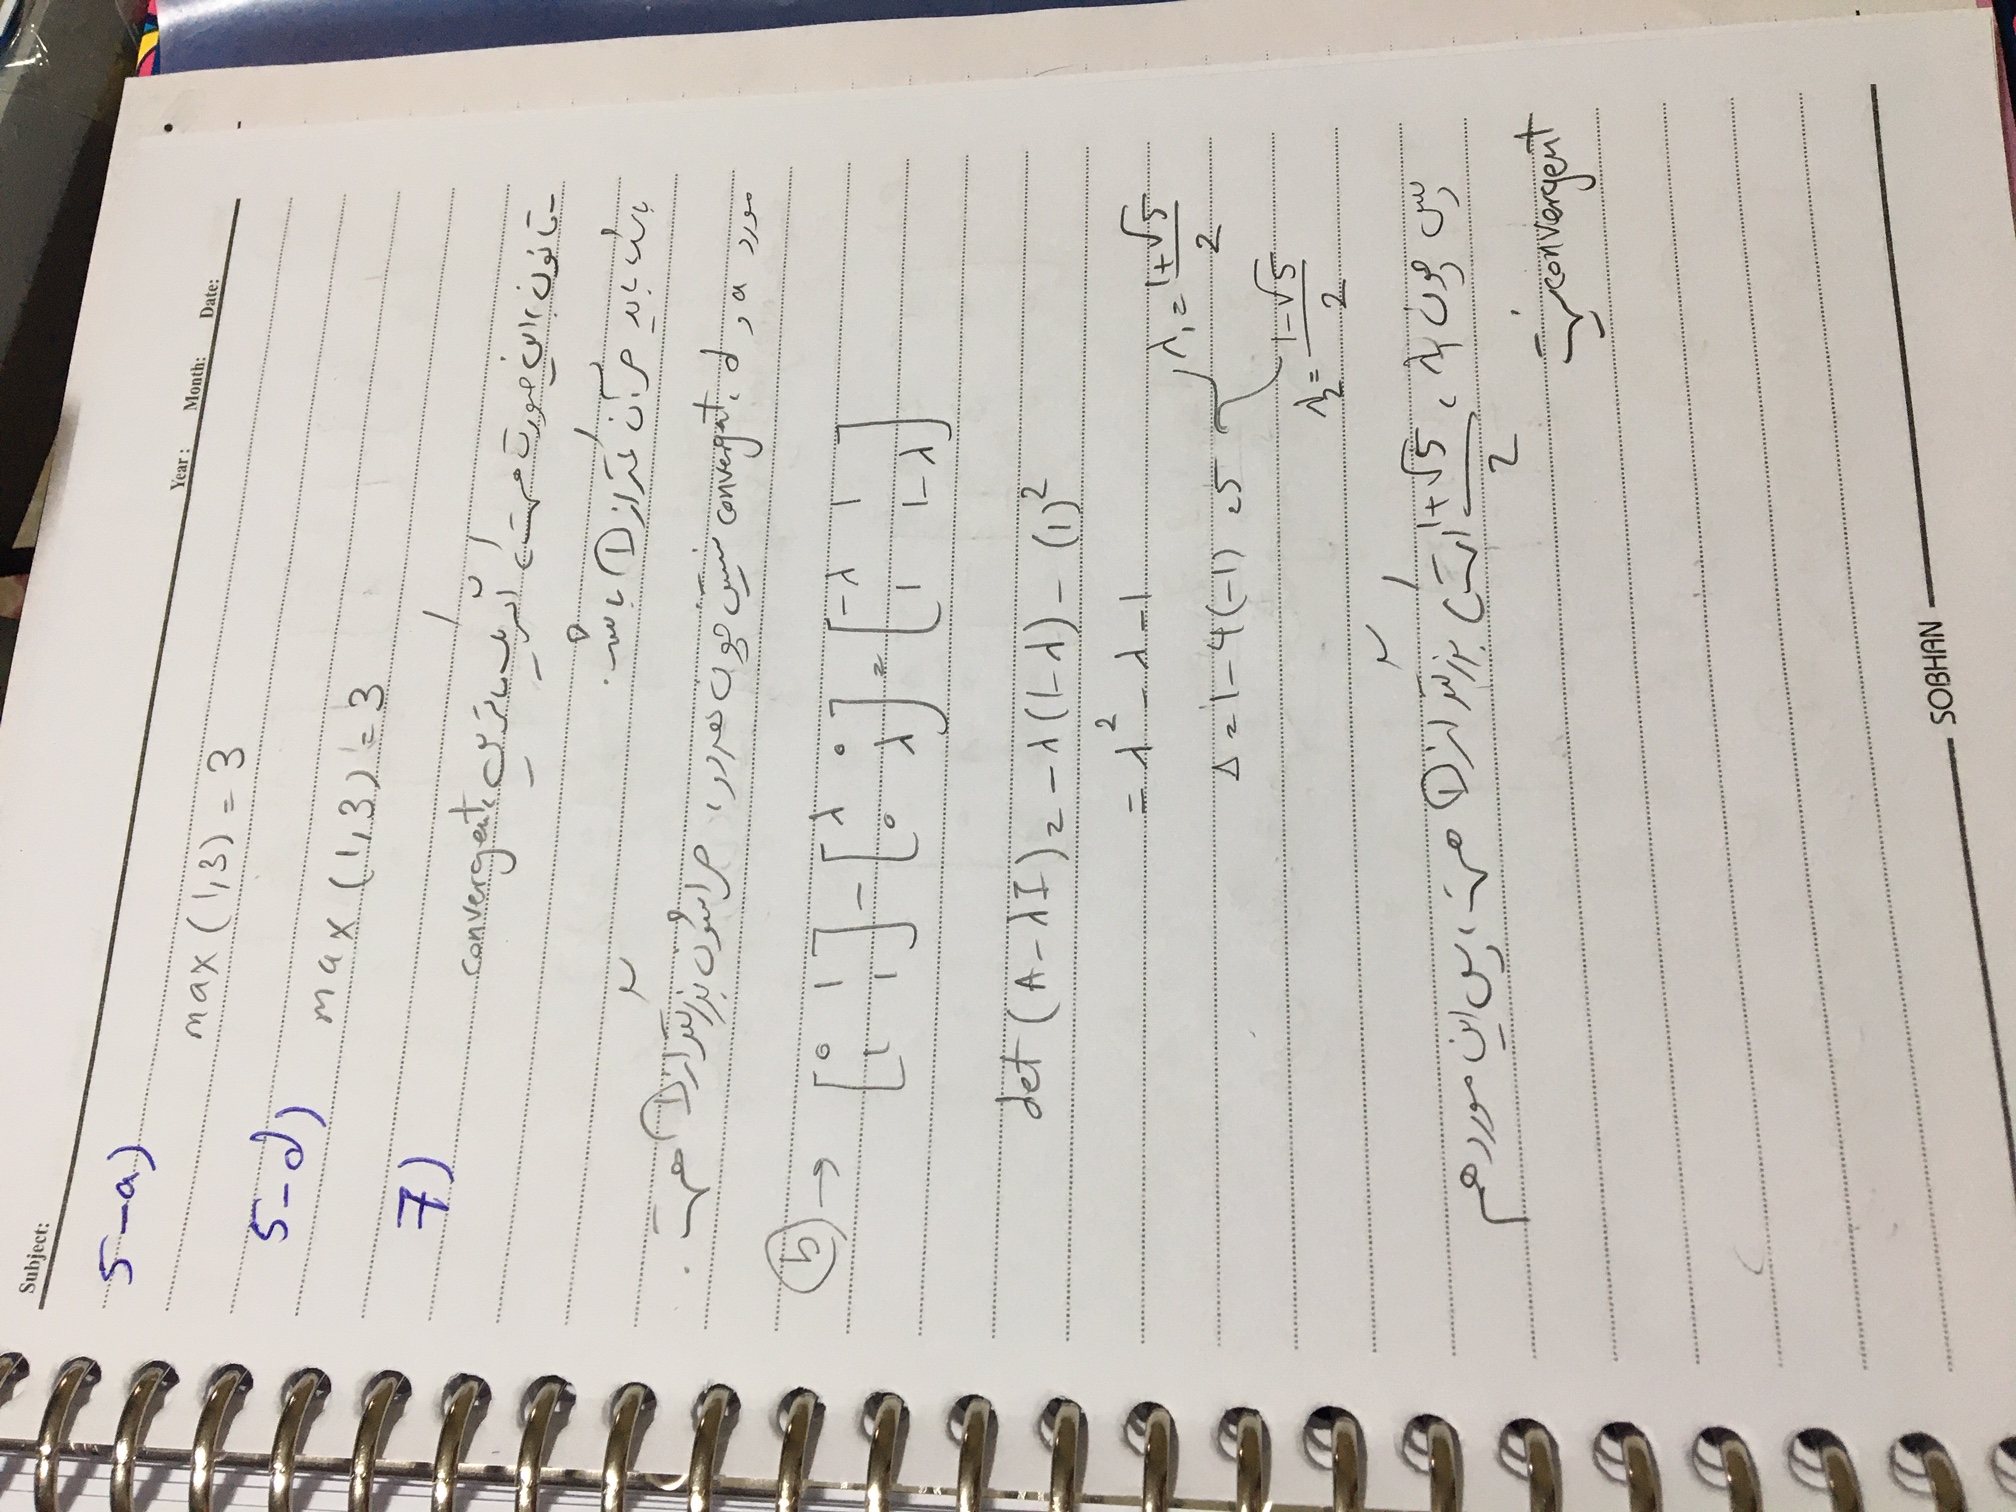 Subject:
Year : Month: Date:
5-a)
max (1,3) = 3
5-d)
max (1,3) = 3
7)
قانون به این صورت هست که اگر یک ماتریس convergent
باشد باید هر آن کمتر از 1 باشد.
مورد a و d، convergent نیستن چون هر دو، هر اشون بزرگتر از 1 هست.
b → [0 1; 1 1] - [λ 0; 0 λ] = [-λ 1; 1 1-λ]
det (A-λI) = -λ(1-λ) - (1)²
= λ² - λ - 1
Δ = 1-4(-1) = 5
λ₁ = (1+√5)/2
λ₂ = (1-√5)/2
پس چون (1+√5)/2 است که بزرگتر از 1 هست، پس این مورد هم
convergent نیست
SOBHAN